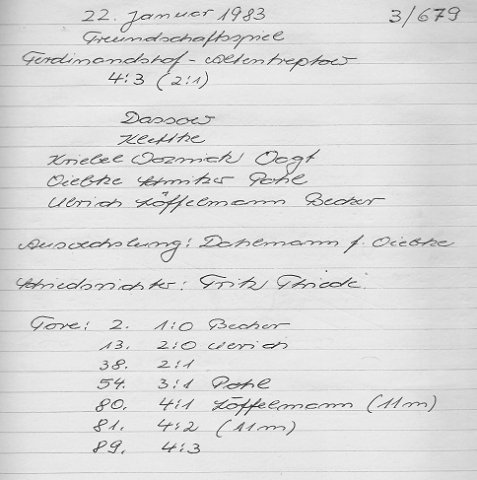 22. Januar 1983 3/679
Freundschaftsspiel
Ferdinandshof - Altentreptow
4:3 (2:1)
Dassow
Klettke
Kriebel Wozniak Vogt
Viebke Schnitzer Pohl
Ulrich Löffelmann Becker
Auswechslung: Dahlmann f. Viebke
Schiedsrichter: Fritz Thiede
Tore: 2. 1:0 Becker
13. 2:0 Ulrich
38. 2:1
54. 3:1 Pohl
80. 4:1 Löffelmann (11m)
81. 4:2 (11m)
89. 4:3